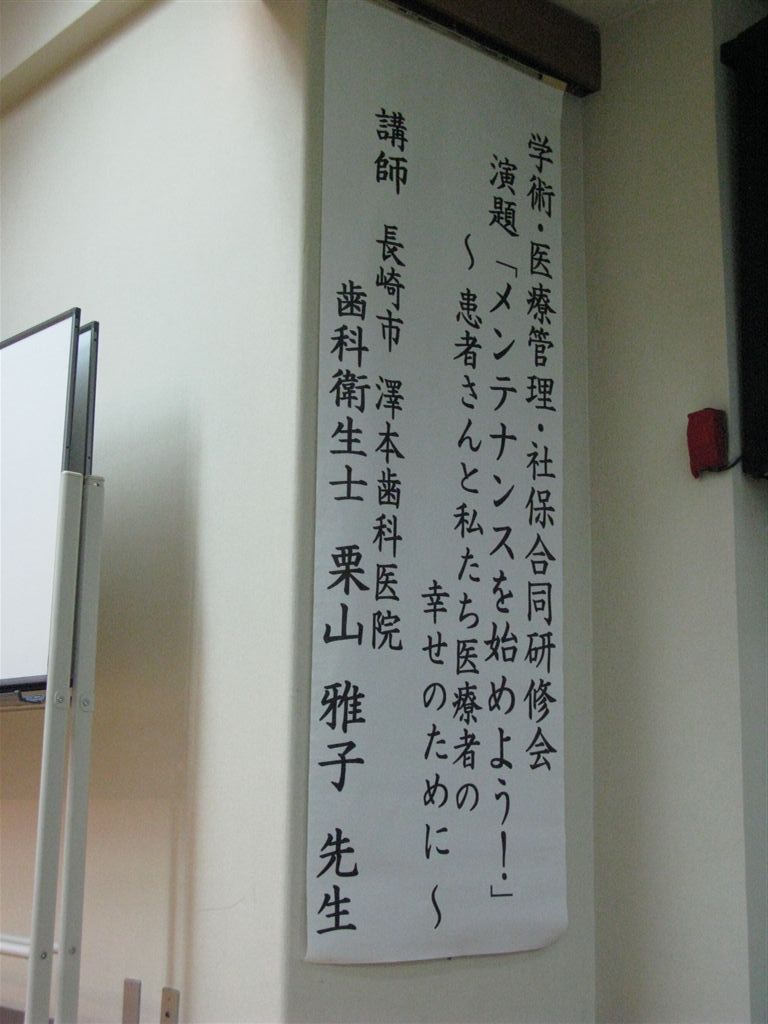 学術・医療管理・社保合同研修会
演題「メンテナンスを始めよう！」
～患者さんと私たち医療者の
幸せのために～
講師 長崎市 澤本歯科医院
歯科衛生士 栗山 雅子 先生